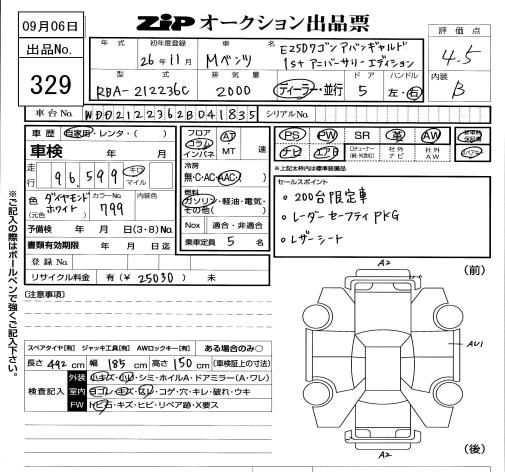 09月06日
ZiP オークション出品票
評価点
4.5
内装
B
出品No.
329
年式
初年度登録
26年11月
車名
Mベンツ
E250ワゴン アバンギャルド
1st アニバーサリーエディション
型式
RBA-212236C
排気量
2000
ディーラー・並行
ドア
5
ハンドル
左・右
車台No.
WDD2122362B041835
シリアルNo.
車歴 自家用・レンタ・( )
車検 年 月
走行
96,599
キロ
マイル
色
(元色)
ダイヤモンド
ホワイト
カラーNo.
799
内装色
予備検 年 月 日(3・8)No.
書類有効期限 年 月 日迄
登録No.
リサイクル料金 有(¥ 25030 ) 未
フロア
コラム
インパネ
AT
MT
速
冷房
無・C・AC・AAC
燃料
ガソリン・軽油・電気・
その他( )
Nox 適合・非適合
乗車定員 5 名
PS PW SR 革 AW
ナビ エアB
社外
ナビ
社外
AW
※上記太枠内は標準装備品
セールスポイント
○ 200台限定車
○ レーダーセーフティPKG
○ レザーシート
[注意事項]
スペアタイヤ[有] ジャッキ工具[有] AWロックキー[有] ある場合のみ○
長さ 492 cm 幅 185 cm 高さ 150 cm (車検証上の寸法)
検査記入
外装 小キズ・凹・シミ・ホイルA・ドアミラー(A・ワレ)
室内 ヨゴレ・キズ・スレ・コゲ・穴・キレ・破れ・ウキ
FW トビ石・キズ・ヒビ・リペア跡・X要ス
※ご記入の際はボールペンで強くご記入下さい。
(前)
A2
AU1
A2
(後)